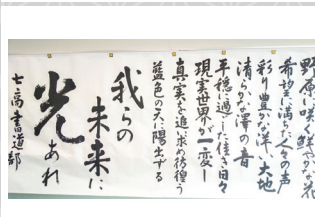 野原に咲く鮮やかな花
希望に満ちた人々の声
彩り豊かな洋い大地
清らかな澤の音
平穏に過ごした佳き日々
現実世界が一変し
真実を追い求め彷徨う
藍色の天に陽出ずる
我らの
未来に
光あれ
七高書道部